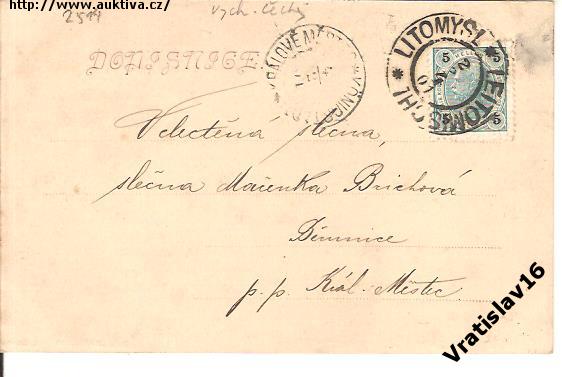 http://www.auktiva.cz/
2514
vých. Čechy
DOPISNICE.
LITOMYŠL
LEITOMISCHL
5 5
5 5
Velectěná slečna,
slečna Mařenka Brichová
Dimnice
p. p. Král. Městec
Vratislav16